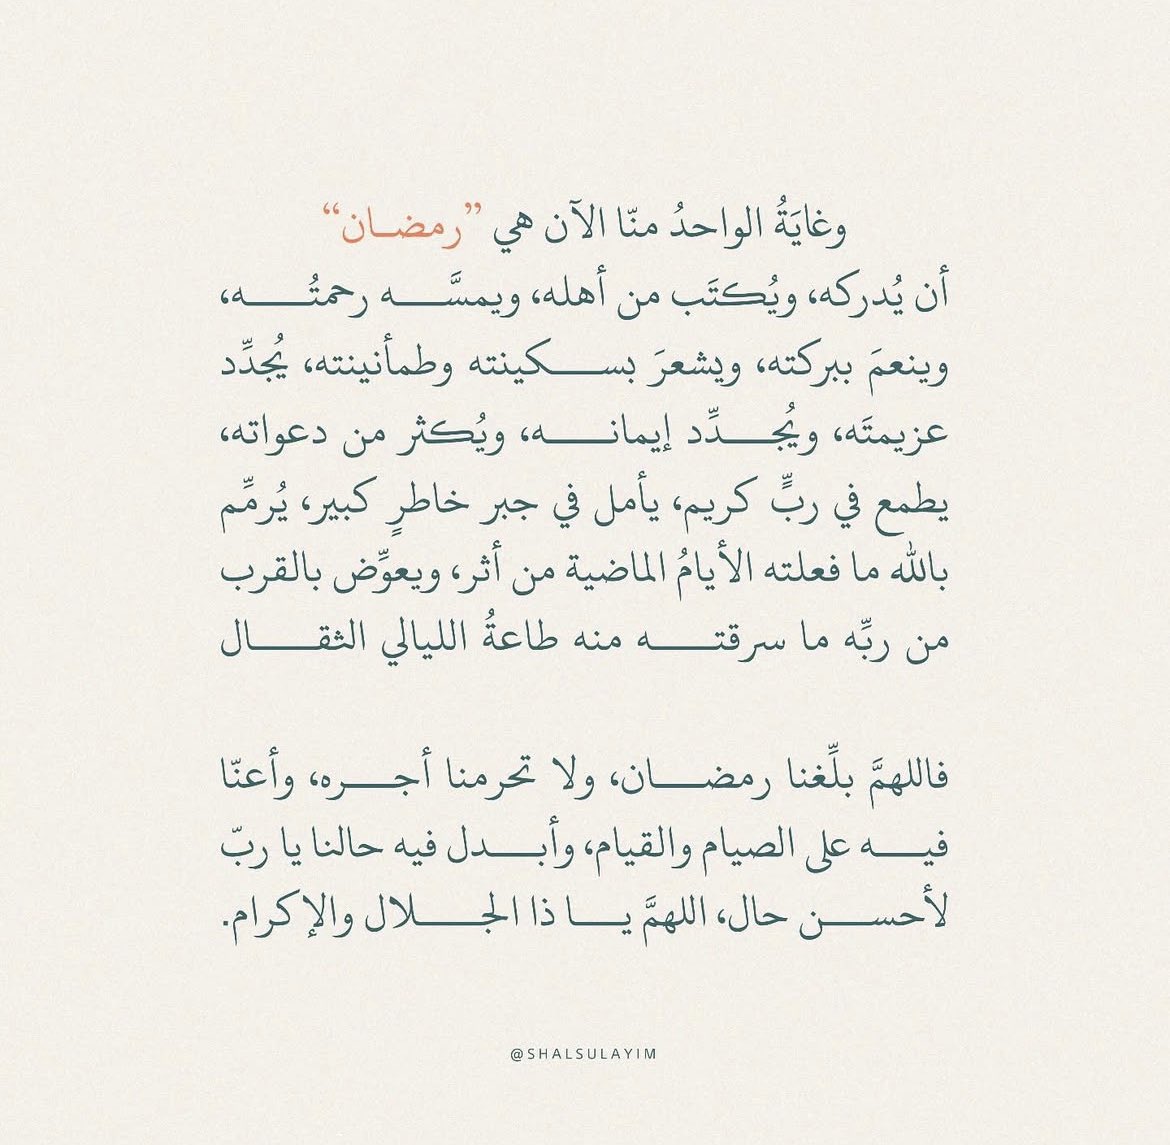 وغايَةُ الواحدُ منّا الآن هي ”رمضـان“
أن يُدركه، ويُكتَب من أهله، ويمسَّـــه رحمتُـــه،
وينعمَ ببركته، ويشعرَ بســـكينته وطمأنينته، يُجدِّد
عزيمتَه، ويُجـــدِّد إيمانـــه، ويُكثر من دعواته،
يطمع في ربٍّ كريم، يأمل في جبر خاطرٍ كبير، يُرمِّم
بالله ما فعلته الأيامُ الماضية من أثر، ويعوِّض بالقرب
من ربِّه ما سرقتـــه منه طاعةُ الليالي الثقـــال
فاللهمَّ بلِّغنا رمضـــان، ولا تحرمنا أجـــره، وأعنّا
فيـــه على الصيام والقيام، وأبـــدل فيه حالنا يا ربّ
لأحســـن حال، اللهمَّ يـــا ذا الجـــلال والإكرام.
@SHALSULAYIM